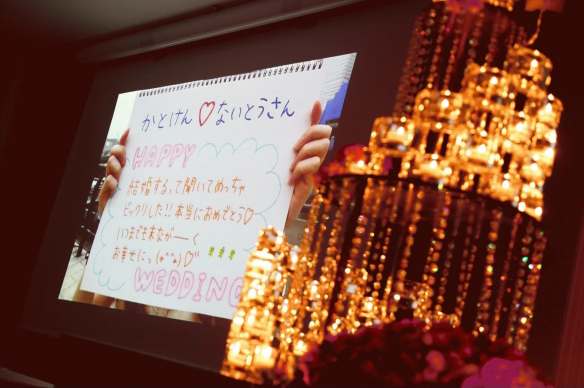 かとけん♡ないとうさん
HAPPY
結婚するって聞いてめっちゃ
ビックリした!!本当におめでとう♡
いつまでも末なが——く
お幸せにっ(*^^*)♡
WEDDING